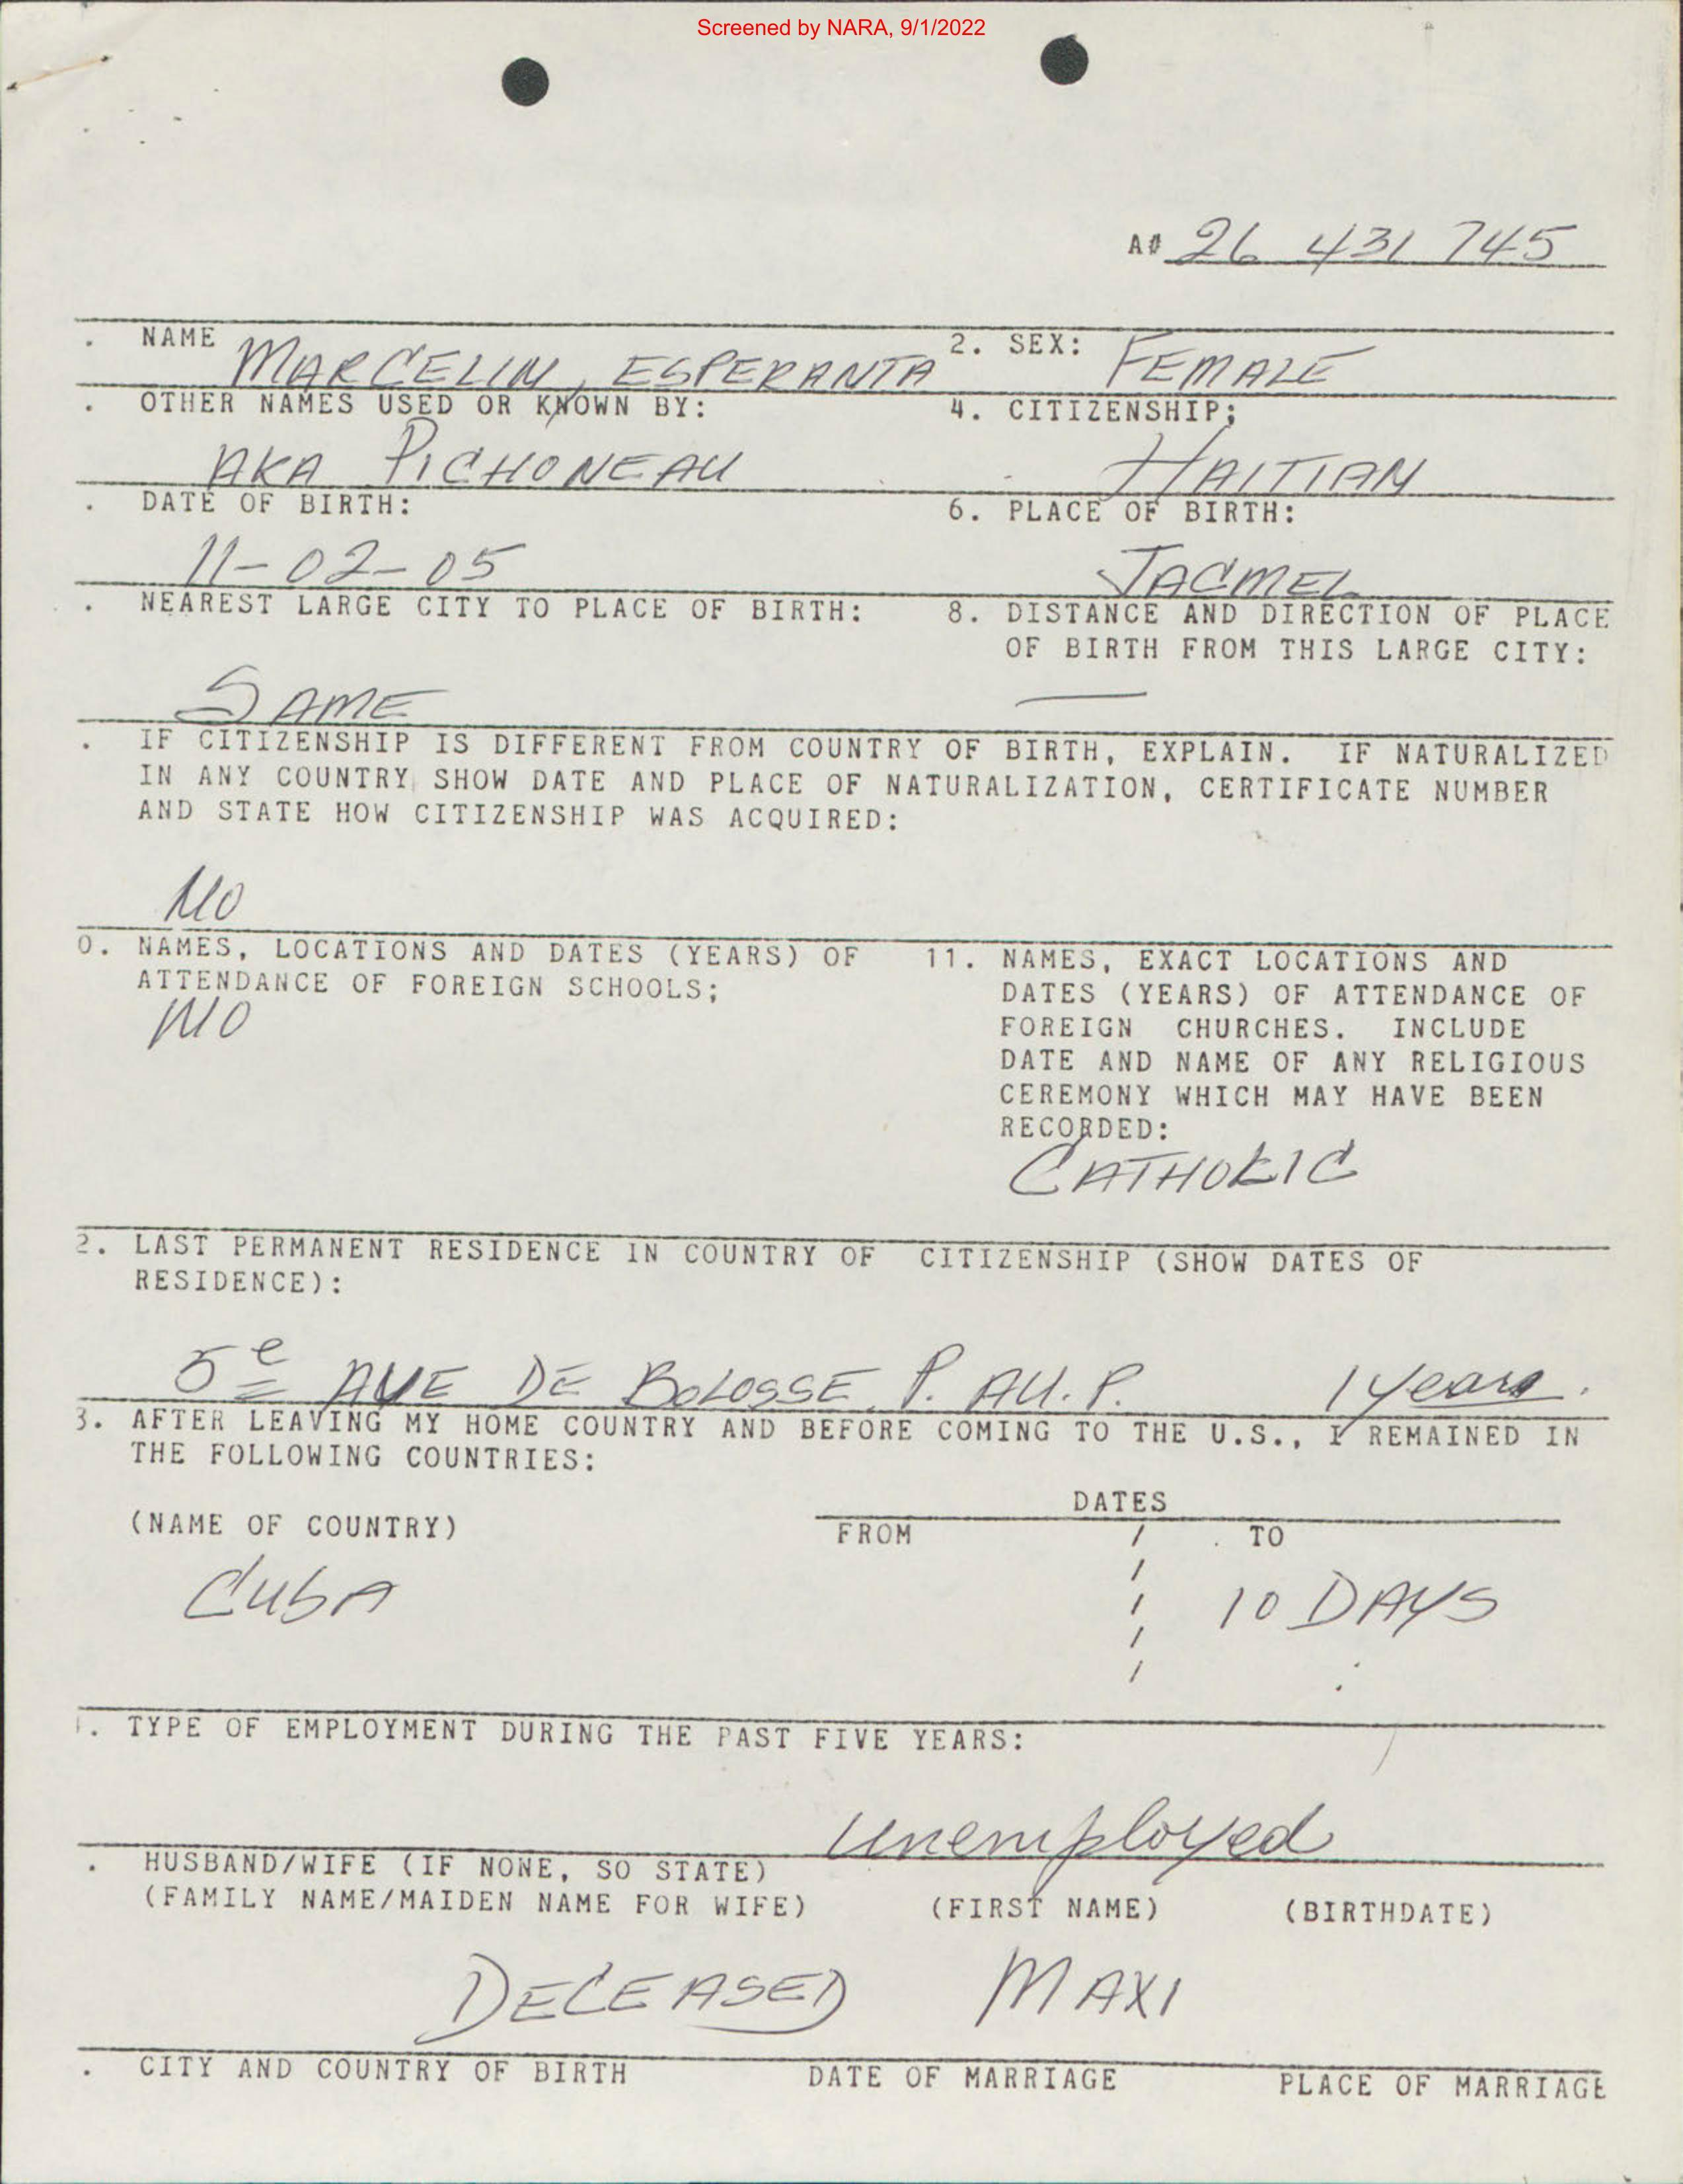 Screened by NARA, 9/1/2022
A# 26 431 745
. NAME MARCELIN, ESPERANTA 2. SEX: FEMALE
. OTHER NAMES USED OR KNOWN BY: 4. CITIZENSHIP;
AKA PICHONEAU HAITIAN
. DATE OF BIRTH: 6. PLACE OF BIRTH:
11-02-05 JACMEL
. NEAREST LARGE CITY TO PLACE OF BIRTH: 8. DISTANCE AND DIRECTION OF PLACE
OF BIRTH FROM THIS LARGE CITY:
SAME —
. IF CITIZENSHIP IS DIFFERENT FROM COUNTRY OF BIRTH, EXPLAIN. IF NATURALIZED
IN ANY COUNTRY SHOW DATE AND PLACE OF NATURALIZATION, CERTIFICATE NUMBER
AND STATE HOW CITIZENSHIP WAS ACQUIRED:
NO
0. NAMES, LOCATIONS AND DATES (YEARS) OF
ATTENDANCE OF FOREIGN SCHOOLS;
NO
11. NAMES, EXACT LOCATIONS AND
DATES (YEARS) OF ATTENDANCE OF
FOREIGN CHURCHES. INCLUDE
DATE AND NAME OF ANY RELIGIOUS
CEREMONY WHICH MAY HAVE BEEN
RECORDED:
CATHOLIC
2. LAST PERMANENT RESIDENCE IN COUNTRY OF CITIZENSHIP (SHOW DATES OF
RESIDENCE):
5e AVE DE BOLOSSE P. AU. P. 1 years.
3. AFTER LEAVING MY HOME COUNTRY AND BEFORE COMING TO THE U.S., I REMAINED IN
THE FOLLOWING COUNTRIES:
DATES
(NAME OF COUNTRY) FROM / TO
CUBA 10 DAYS
. TYPE OF EMPLOYMENT DURING THE PAST FIVE YEARS:
Unemployed
. HUSBAND/WIFE (IF NONE, SO STATE)
(FAMILY NAME/MAIDEN NAME FOR WIFE) (FIRST NAME) (BIRTHDATE)
DECEASED MAXI
. CITY AND COUNTRY OF BIRTH DATE OF MARRIAGE PLACE OF MARRIAGE